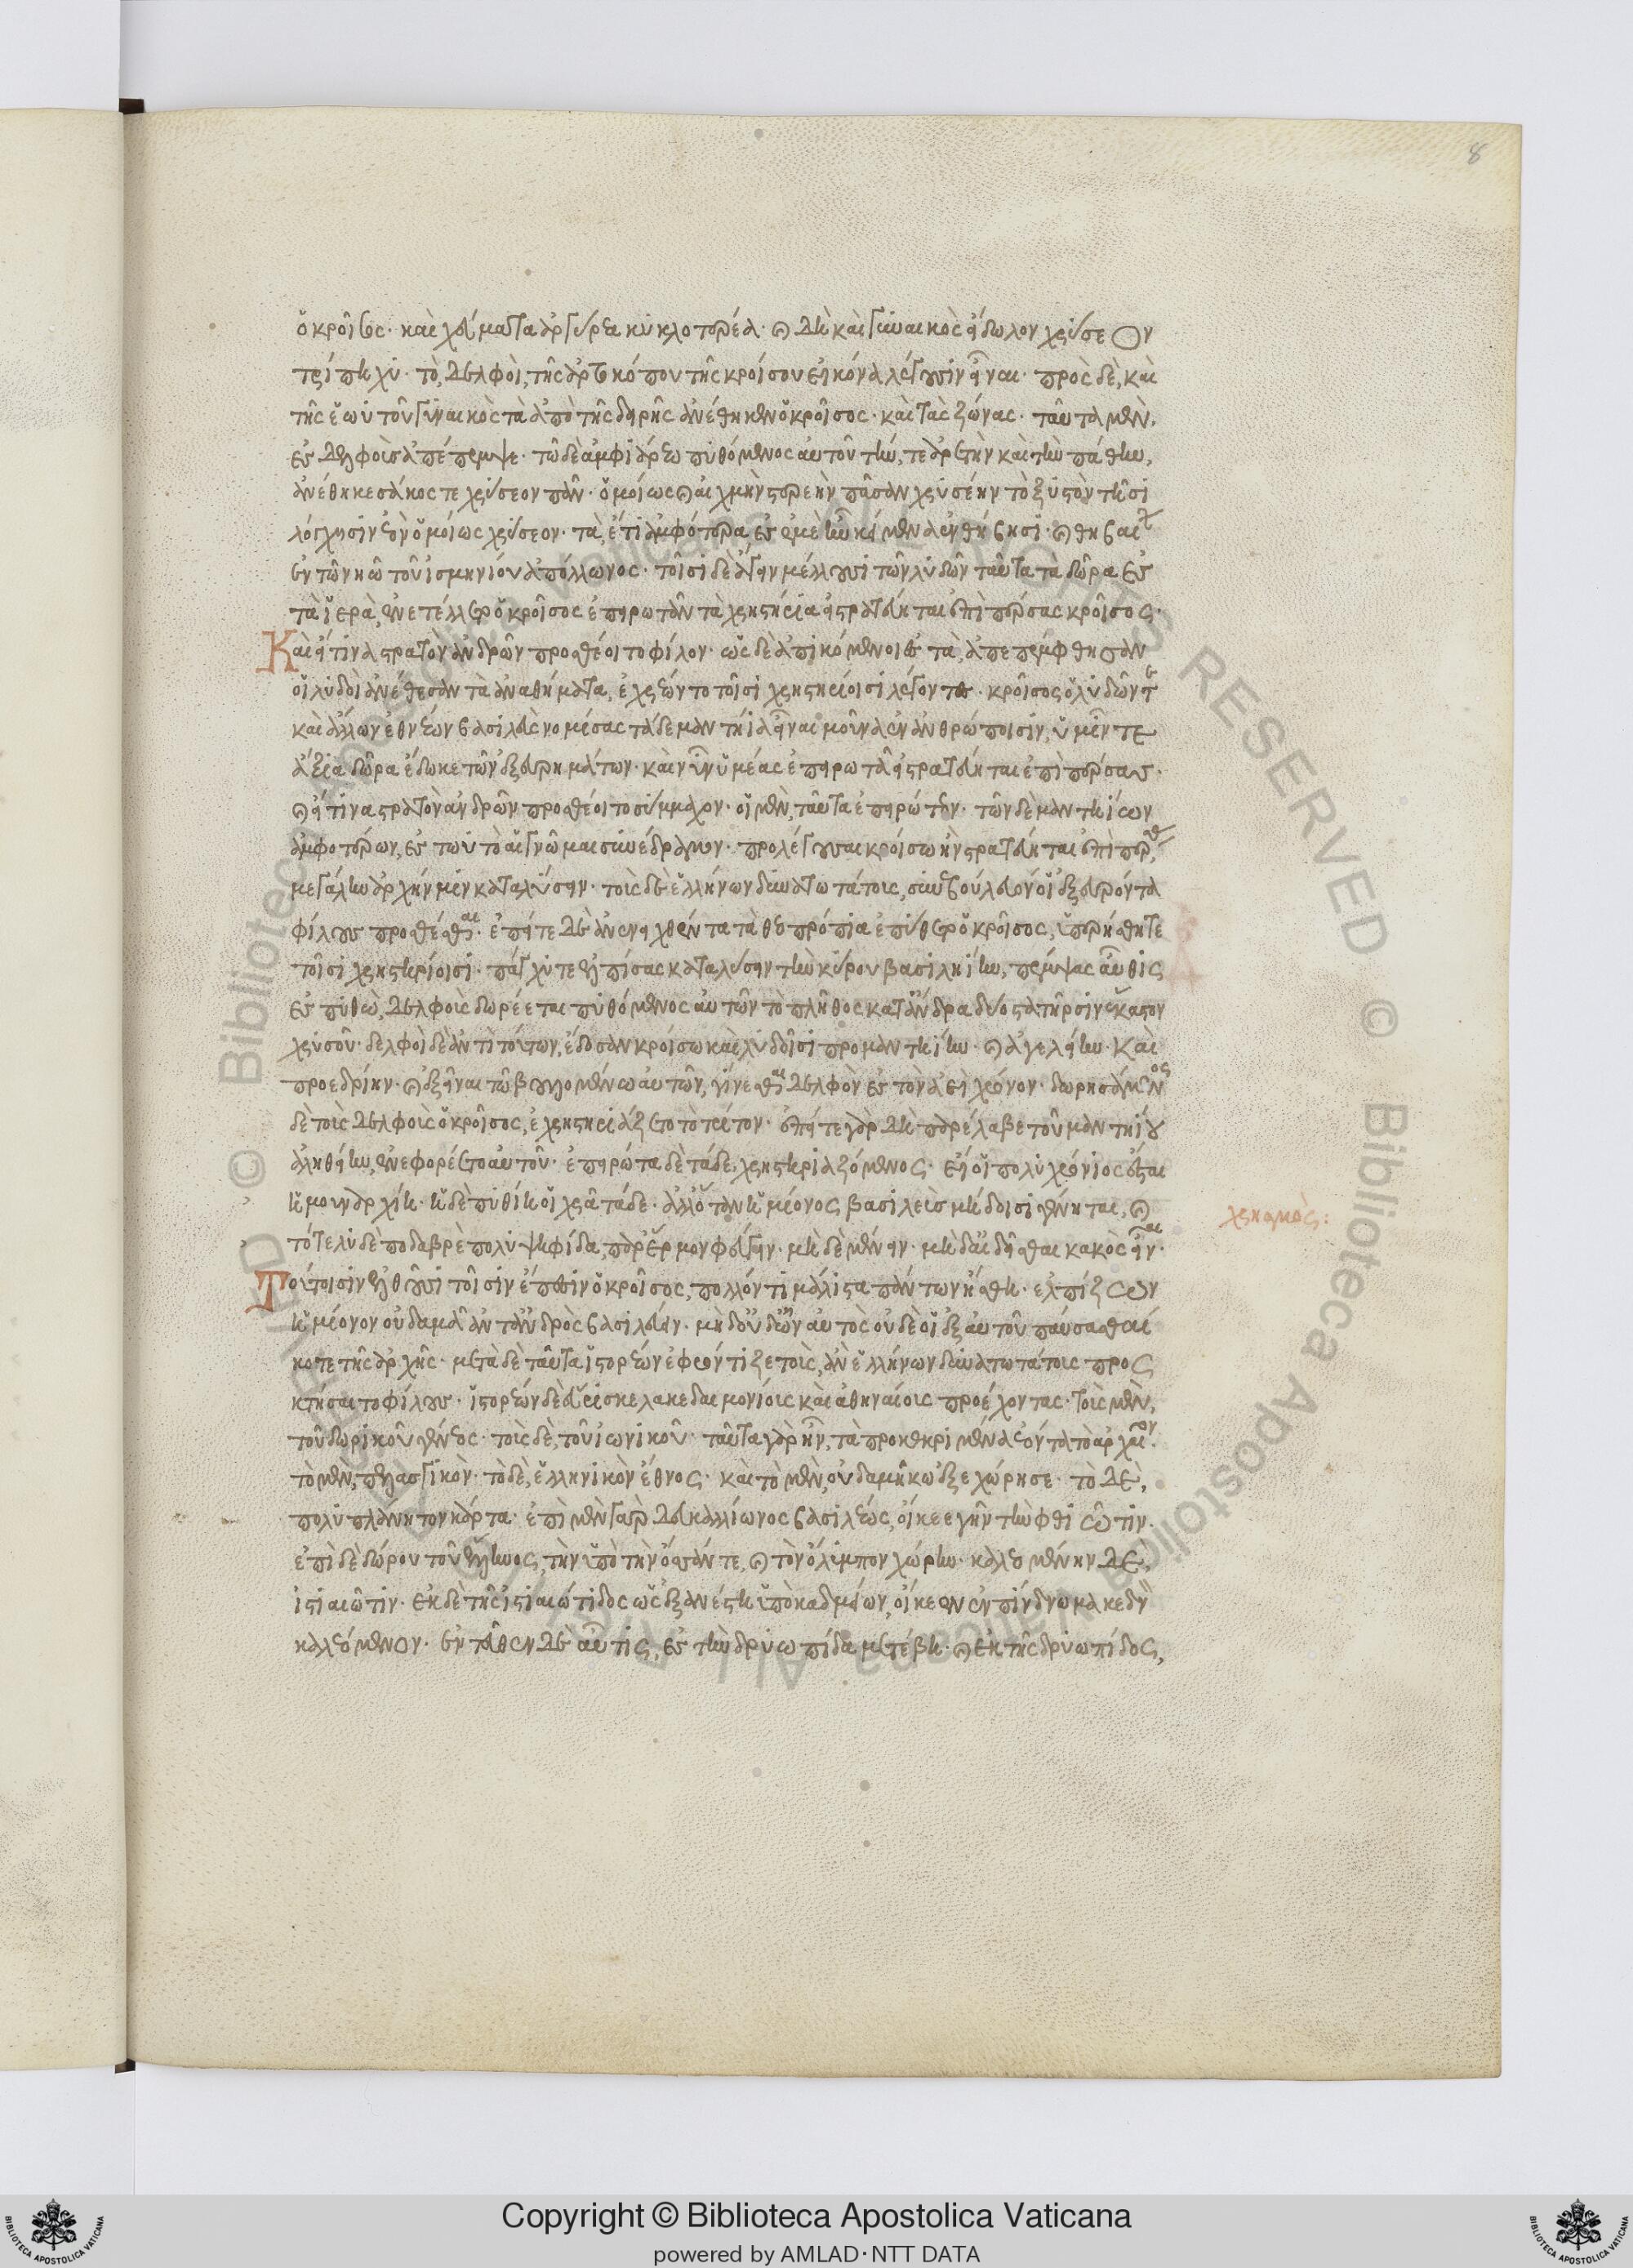 8
ὁ κροῖσος· καὶ χεύματα ἀργύρεα κυκλοτερέα· καὶ δὴ καὶ γυναικὸς εἴδωλον χρύσεον
τρίπηχυ· τὸ, δελφοὶ, τῆς ἀρτοκόπου τῆς κροίσου εἰκόνα λέγουσιν εἶναι· πρὸς δὲ, καὶ
τῆς ἑωυτοῦ γυναικὸς τὰ ἀπὸ τῆς δειρῆς ἀνέθηκεν ὁ κροῖσος· καὶ τὰς ζώνας· ταῦτα μὲν,
ἐς δελφοὺς ἀπέπεμψε· τῶ δὲ ἀμφιάρεω πυθόμενος αὐτοῦ τήν, τε ἀρετὴν καὶ τὴν πάθην,
ἀνέθηκε σάκος τε χρύσεον πᾶν· ὁμοίως καὶ αἰχμὴν στερεὴν πᾶσαν χρυσέην τὸ ξυστὸν τῆσι
λόγχησιν ἐὸν ὁμοίως χρύσεον· τὰ, ἔτι ἀμφότερα, ἐς ἐμὲ ἦν κείμενα ἐν θήβησι· καὶ θηβαίων
ἐν τῶ νηῶ τοῦ ἰσμηνίου ἀπόλλωνος· τοῖσι δὲ ἄγειν μέλλουσι τῶν λυδῶν ταῦτα τὰ δῶρα ἐς
τὰ ἱερὰ, ἐνετέλλετο ὁ κροῖσος ἐπειρωτᾶν τὰ χρηστήρια εἰ στρατεύηται ἐπὶ πέρσας κροῖσος·
Καὶ εἴ τινα στρατὸν ἀνδρῶν προσθέοιτο φίλον· ὡς δὲ ἀπικόμενοι ἐς τὰ, ἀπεπέμφθησαν
οἱ λυδοὶ ἀνέθεσαν τὰ ἀναθήματα, ἐχρέωντο τοῖσι χρηστηρίοισι λέγοντες· κροῖσος ὁ λυδῶν τε
καὶ ἄλλων ἐθνέων βασιλεὺς νομίσας τάδε μαντήια εἶναι μοῦνα ἐν ἀνθρώποισιν, ὑμῖν τε
ἄξια δῶρα ἔδωκε τῶν ἐξευρημάτων· καὶ νῦν ὑμέας ἐπειρωτᾶ εἰ στρατεύηται ἐπὶ πέρσας·
καὶ εἴ τινα στρατὸν ἀνδρῶν προσθέοιτο σύμμαχον· οἱ μὲν, ταῦτα ἐπειρώτων· τῶν δὲ μαντηίων
ἀμφοτέρων, ἐς τωυτὸ αἱ γνῶμαι συνέδραμον· προλέγουσαι κροίσω ἢν στρατεύηται ἐπὶ πέρσας,
μεγάλην ἀρχήν μιν καταλύσειν· τοὺς δὲ ἑλλήνων δυνατωτάτους, συνεβούλευόν οἱ ἐξευρόντα
φίλους προσθέσθαι· ἐπείτε δὲ ἀνενειχθέντα τὰ θεοπρόπια ἐπύθετο ὁ κροῖσος, ὑπερήσθη τε
τοῖσι χρηστηρίοισι· πάγχυ τε ἐλπίσας καταλύσειν τὴν κύρου βασιληίην, πέμψας αὖθις
ἐς πυθὼ, δελφοὺς δωρέεται πυθόμενος αὐτῶν τὸ πλῆθος κατ' ἄνδρα δύο στατῆρσιν ἕκαστον
χρυσοῦ· δελφοὶ δὲ ἀντὶ τούτων, ἔδοσαν κροίσω καὶ λυδοῖσι προμαντηίην· καὶ ἀτελείην· Καὶ
προεδρίην· καὶ ἐξεῖναι τῶ βουλομένω αὐτῶν, γίνεσθαι δελφὸν ἐς τὸν ἀεὶ χρόνον· δωρησάμενος
δὲ τοὺς δελφοὺς ὁ κροῖσος, ἐχρηστηριάζετο τὸ τρίτον· ἐπείτε γὰρ δὴ παρέλαβε τοῦ μαντηίου
ἀληθείην, ἐνεφορέετο αὐτοῦ· ἐπειρώτα δὲ τάδε χρηστηριαζόμενος· εἴ οἱ πολυχρόνιος ἔσται
ἡ μουναρχίη· ἡ δὲ πυθίη οἱ χρᾶ τάδε· ἀλλ' ὅταν ἡμίονος βασιλεὺς μήδοισι γένηται, καὶ
τότε λυδὲ ποδαβρὲ πολυψήφιδα, παρ' ἕρμον φεύγειν· μὴ δὲ μένειν· μὴ δ' αἰδεῖσθαι κακὸς εἶναι·
χρησμὸς:
Τούτοισιν ἐλθοῦσι τοῖσιν ἔπεσιν ὁ κροῖσος, πολλόν τι μάλιστα πάντων ἥσθη· ἐλπίζων
ἡμίονον οὐδαμὰ ἀντ' ἀνδρὸς βασιλεύειν· μὴδ' οὐδ' ὦν αὐτὸς οὐδὲ οἱ ἐξ αὐτοῦ παύσασθαί
κοτε τῆς ἀρχῆς· μετὰ δὲ ταῦτα ἱστορέων ἐφρόντιζε τοὺς, ἂν ἑλλήνων δυνατωτάτους προς
κτήσαιτο φίλους· ἱστορέων δὲ εὕρισκε λακεδαιμονίους καὶ ἀθηναίους προέχοντας· τοὺς μὲν,
τοῦ δωρικοῦ γένεος· τοὺς δὲ, τοῦ ἰωνικοῦ· ταῦτα γὰρ ἦν, τὰ προκεκριμένα ἐόντα τὸ ἀρχαῖον·
τὸ μὲν, πελασγικὸν· τὸ δὲ, ἑλληνικὸν ἔθνος· καὶ τὸ μὲν, οὐδαμῆ κω ἐξεχώρησε· τὸ δὲ,
πολυπλάνητον κάρτα· ἐπὶ μὲν γὰρ δευκαλίωνος βασιλέως, οἴκεε γῆν τὴν φθιῶτιν·
ἐπὶ δὲ δώρου τοῦ ἕλληνος, τὴν ὑπὸ τὴν ὄσσάν τε, καὶ τὸν ὄλυμπον χώρην· καλεομένην δὲ,
ἱστιαιῶτιν· ἐκ δὲ τῆς ἱστιαιώτιδος ὡς ἐξανέστη ὑπὸ καδμείων, οἴκεεν ἐν πίνδω μακεδνὸν
καλεόμενον· ἐνταῦθεν δὲ αὖτις, ἐς τὴν δρυωπίδα μετέβη· καὶ ἐκ τῆς δρυωπίδος,
© Biblioteca Apostolica Vaticana. ALL RIGHTS RESERVED
Copyright © Biblioteca Apostolica Vaticana
powered by AMLAD·NTT DATA
BIBLIOTECA APOSTOLICA VATICANA
BIBLIOTECA APOSTOLICA VATICANA